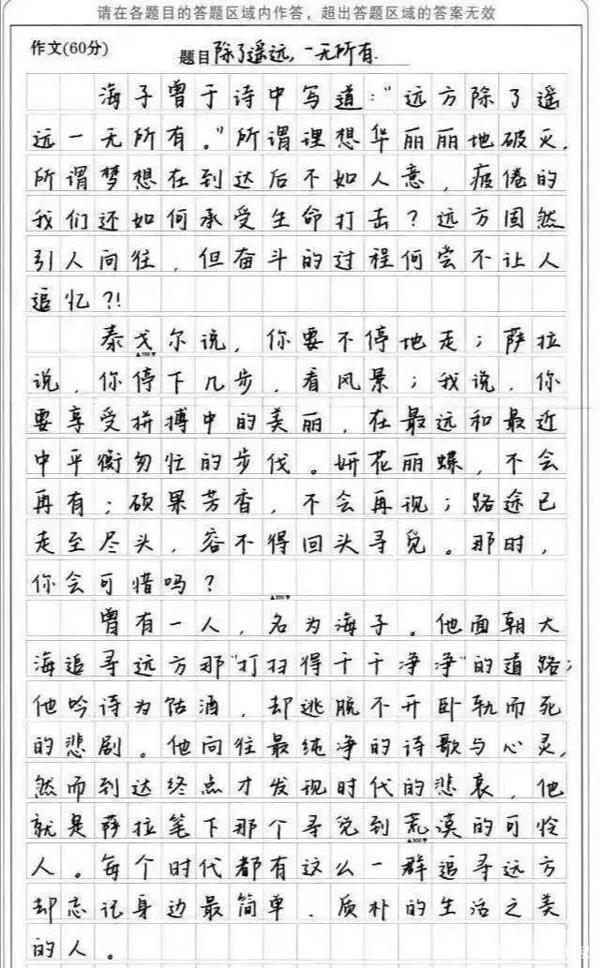 请在各题目的答题区域内作答，超出答题区域的答案无效
作文(60分)
题目 除了遥远，一无所有.
海子曾于诗中写道："远方除了遥
远一无所有。"所谓理想华丽丽地破灭，
所谓梦想在到达后不如人意，疲倦的
我们还如何承受生命打击？远方固然
引人向往，但奋斗的过程何尝不让人
追忆?!
泰戈尔说，你要不停地走；萨拉
说，你停下几步，看风景；我说，你
要享受拼搏中的美丽，在最远和最近
中平衡匆忙的步伐。妍花丽蝶，不会
再有；硕果芳香，不会再现；路途已
走至尽头，容不得回头寻觅。那时，
你会可惜吗？
▲200▼
曾有一人，名为海子。他面朝大
海追寻远方那"打扫得干干净净"的道路；
他吟诗为酤酒，却逃脱不开卧轨而死
的悲剧。他向往最纯净的诗歌与心灵，
然而到达终点才发现时代的悲哀，他
就是萨拉笔下那个寻觅到荒漠的可怜
人。每个时代都有这么一群追寻远方
却忘记身边最简单、质朴的生活之美
的人。